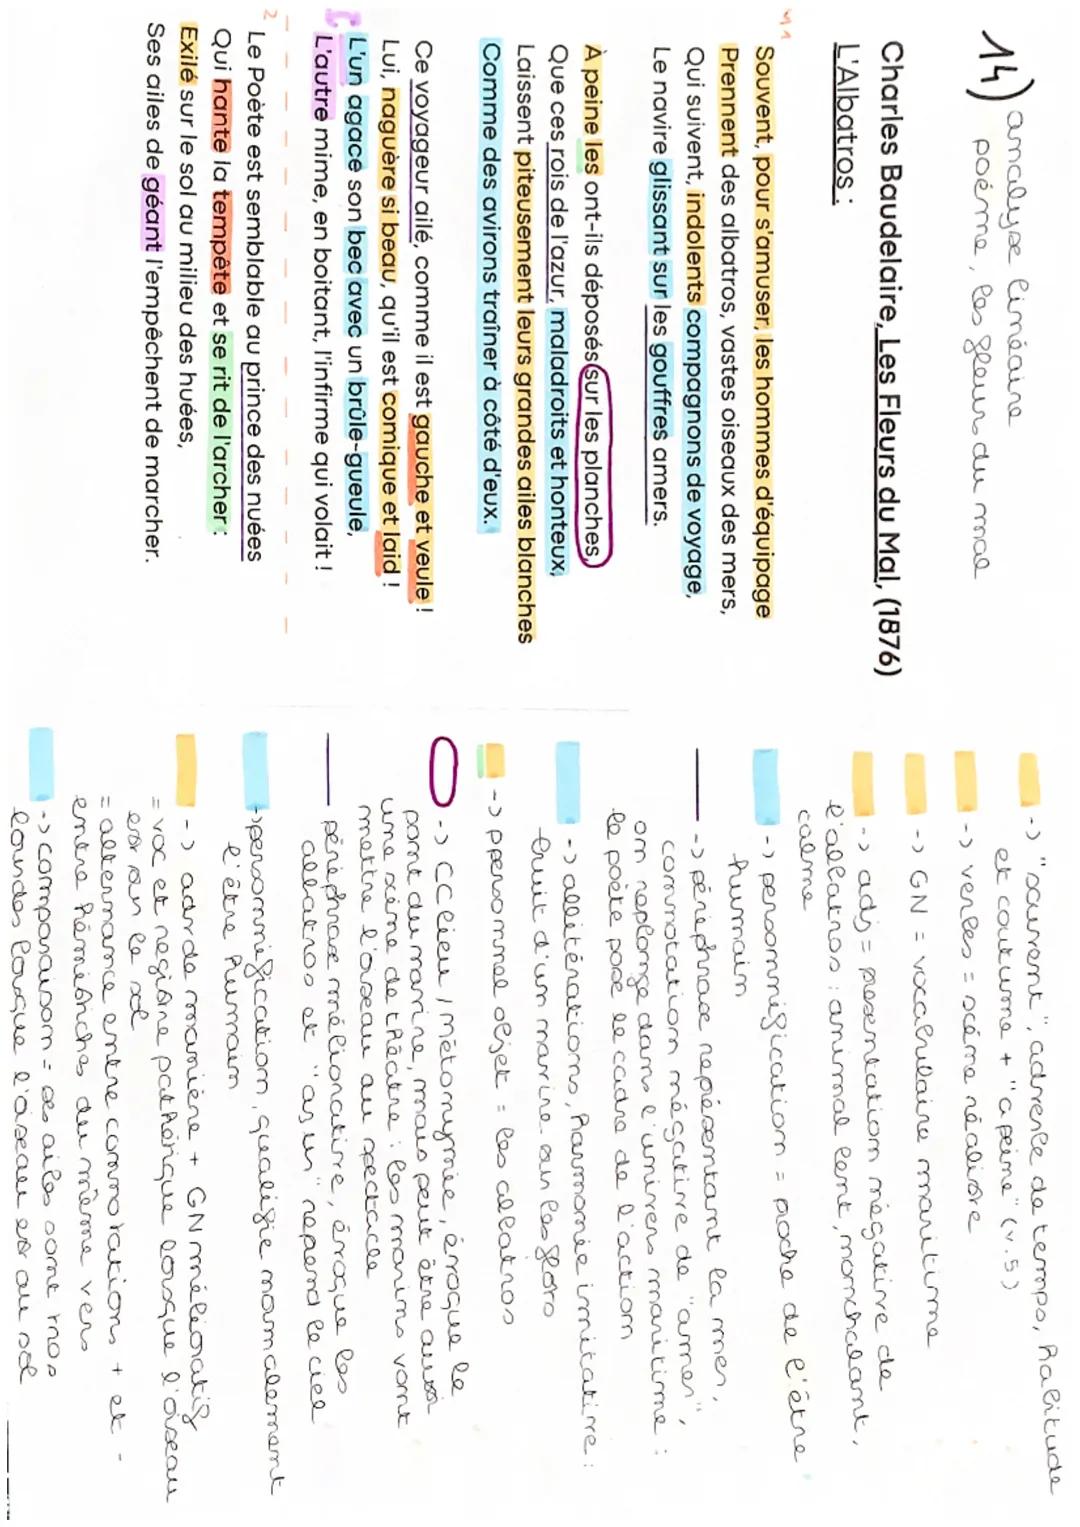 14) analyse linéaire
poème, les fleurs du mal
Charles Baudelaire, Les Fleurs du Mal, (1876)
L'Albatros :
M1
Souvent, pour s'amuser, les hommes d'équipage
Prennent des albatros, vastes oiseaux des mers,
Qui suivent, indolents compagnons de voyage,
Le navire glissant sur les gouffres amers.
À peine les ont-ils déposés sur les planches,
Que ces rois de l'azur, maladroits et honteux,
Laissent piteusement leurs grandes ailes blanches
Comme des avirons traîner à côté d'eux.
Ce voyageur ailé, comme il est gauche et veule !
Lui, naguère si beau, qu'il est comique et laid !
L'un agace son bec avec un brûle-gueule,
L'autre mime, en boitant, l'infirme qui volait !
2
Le Poète est semblable au prince des nuées
Qui hante la tempête et se rit de l'archer :
Exilé sur le sol au milieu des huées,
Ses ailes de géant l'empêchent de marcher.
-> "souvent", adverbe de temps, habitude
et coutume + "a peine" (v.5)
-> verbes = scème réaliste
-> GN = vocabulaire maritime
-> adj = présentation mégative de
l'albatros : animal lent, monchalant,
calme
-> personmification = proche de l'être
humain
-> périphrase représentant la mer,
connotation mégative de "amer",
om replonge dans l'univers maritime :
le poète pose le cadre de l'action
-> allitérations, harmonie imitative :
bruit d'un navire sur les flots
-> ppersonnel objet = les albatros
-> CC lieu / métonymie, évoque le
pont du navire, mais peut être aussi
une scème de théâtre : les marins vont
mettre l'oiseau au spectacle
périphrase méliorative, évoque les
albatros et "azur" reprend le ciel
-> personnification, qualifie normalement
l'être humain
-> adv de manière + GN mélioratif
= voc et registre pathétique lorsque l'oiseau
est sur le sol
= alternance entre connotations + et -
entre hémistiches du même vers
-> comparaison = ses ailes sont mos
lourdes lorsque l'oiseau est au sol